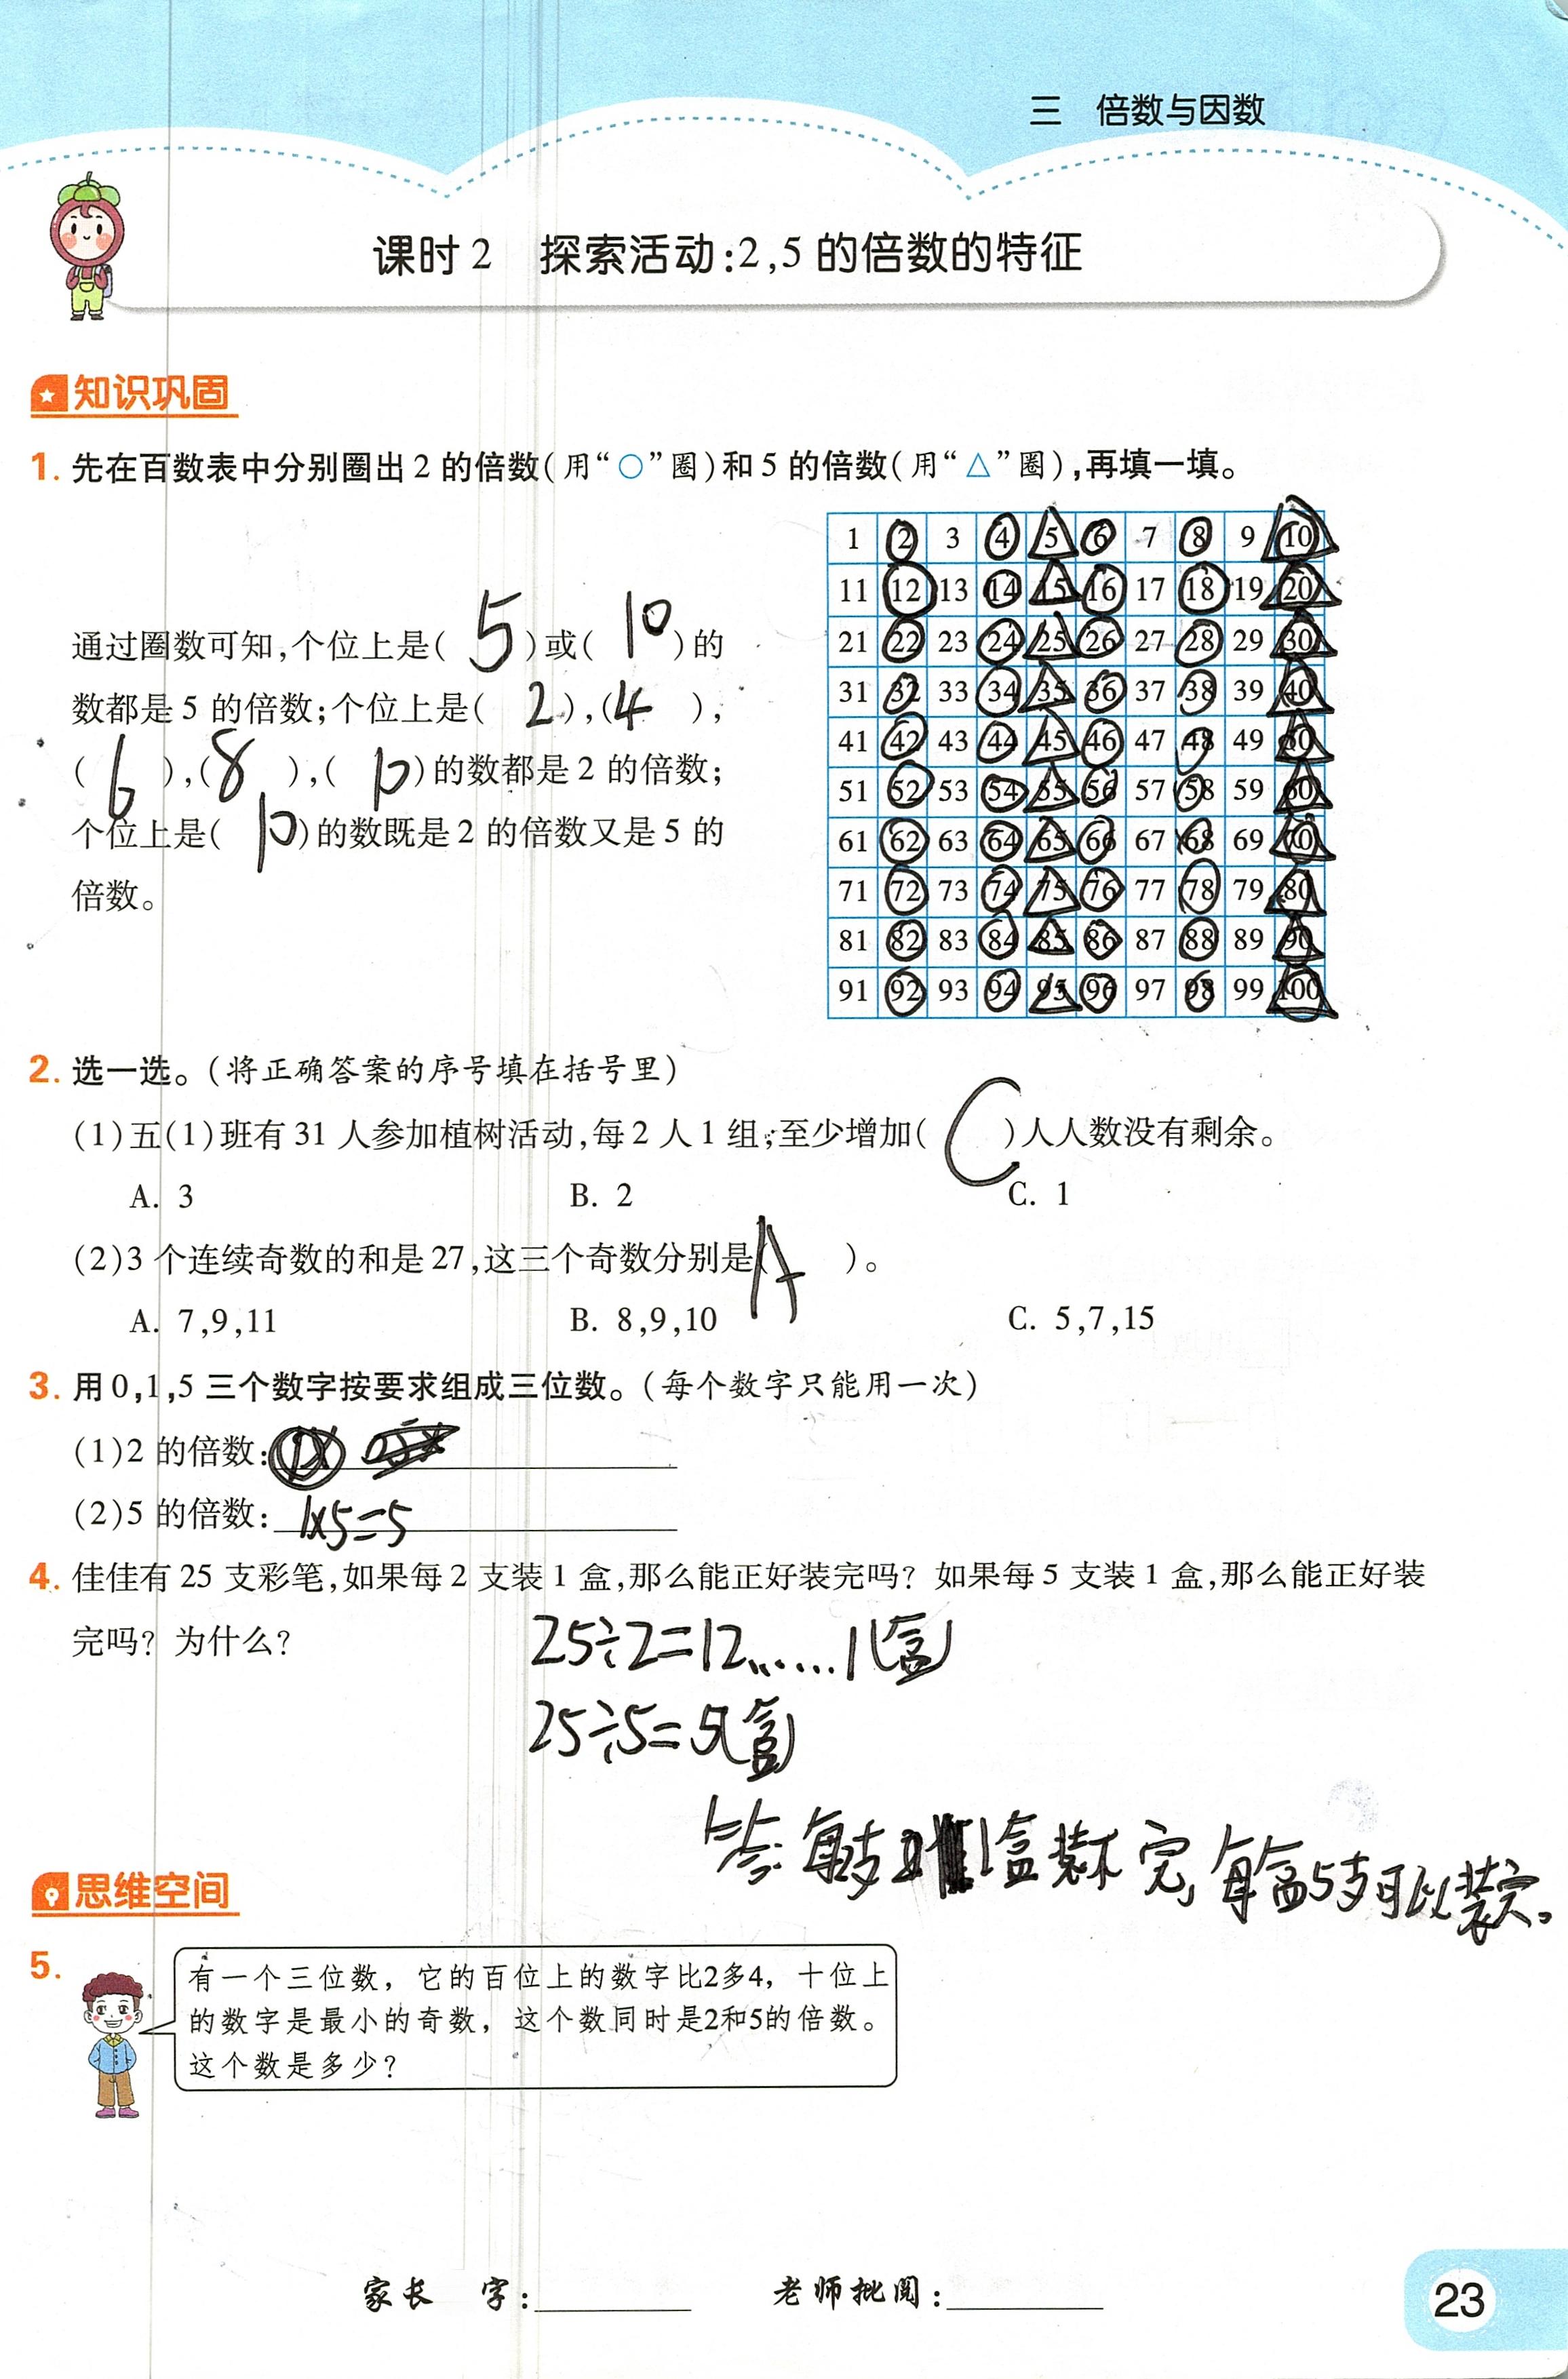 三 倍数与因数
课时2 探索活动:2,5的倍数的特征
知识巩固
1. 先在百数表中分别圈出2的倍数(用“○”圈)和5的倍数(用“△”圈),再填一填。
1 2 3 4 5 6 7 8 9 10
11 12 13 14 15 16 17 18 19 20
21 22 23 24 25 26 27 28 29 30
31 32 33 34 35 36 37 38 39 40
41 42 43 44 45 46 47 48 49 50
51 52 53 54 55 56 57 58 59 60
61 62 63 64 65 66 67 68 69 70
71 72 73 74 75 76 77 78 79 80
81 82 83 84 85 86 87 88 89 90
91 92 93 94 95 96 97 98 99 100
通过圈数可知,个位上是( 5 )或( 10 )的
数都是5的倍数;个位上是( 2 ),( 4 ),
( 6 ),( 8 ),( 10 )的数都是2的倍数;
个位上是( 10 )的数既是2的倍数又是5的
倍数。
2. 选一选。(将正确答案的序号填在括号里)
(1)五(1)班有31人参加植树活动,每2人1组,至少增加( C )人人数没有剩余。
A. 3 B. 2 C. 1
(2)3个连续奇数的和是27,这三个奇数分别是( A )。
A. 7,9,11 B. 8,9,10 C. 5,7,15
3. 用0,1,5三个数字按要求组成三位数。(每个数字只能用一次)
(1)2的倍数:
(2)5的倍数: 1×5=5
4. 佳佳有25支彩笔,如果每2支装1盒,那么能正好装完吗?如果每5支装1盒,那么能正好装
完吗?为什么?
25÷2=12……1(盒)
25÷5=5(盒)
答:每支 1盒装不完,每盒5支可以装完。
思维空间
5.
有一个三位数,它的百位上的数字比2多4,十位上
的数字是最小的奇数,这个数同时是2和5的倍数。
这个数是多少?
家长 字: 老师批阅:
23